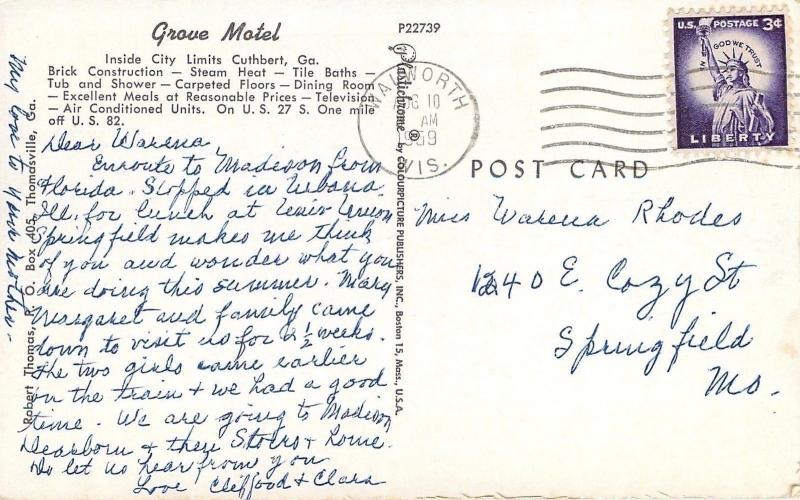 Grove Motel
Inside City Limits Cuthbert, Ga.
Brick Construction — Steam Heat — Tile Baths —
Tub and Shower — Carpeted Floors — Dining Room
— Excellent Meals at Reasonable Prices — Television
— Air Conditioned Units. On U.S. 27 S. One mile
off U.S. 82.
Dear Warena,
Enroute to Madison from
Florida. Stopped in Urbana
Ill. for lunch at Union
Springfield makes me think
of you and wonder what you
are doing this summer. Mary
Margaret and family came
down to visit us for 2 1/2 weeks.
The two girls came earlier
on the train + we had a good
time. We are going to Madison
Dearborn + then + home.
Do let us hear from you
Love Clifford + Clara
My love to your mother -
Robert Thomas, P. O. Box 405, Thomasville, Ga.
P22739
Plastichrome ® by COLOURPICTURE PUBLISHERS, INC., Boston 15, Mass., U.S.A.
WALWORTH
10
AM
1959
WIS.
U.S. POSTAGE 3¢
IN GOD WE TRUST
LIBERTY
POST CARD
Miss Warena Rhodes
1240 E. Cozy St
Springfield
Mo.